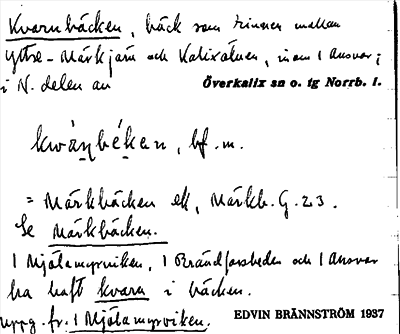 Kvarnbäcken, bäck som rinner mellan
Yttre-Märkjärn och Kalixälven, inom 1 Ansvar;
i N. delen av Överkalix sn o. tg Norrb. l.
kwánbékan, bf. m.
= Märkbäcken ek, Märkb. G. 23.
Se Märkbäcken.
1 Mjölamyrviken, 1 Brändforsheden och 1 Ansvar
ha haft kvarn i bäcken.
uppg. fr. 1 Mjölamyrviken. EDVIN BRÄNNSTRÖM 1937